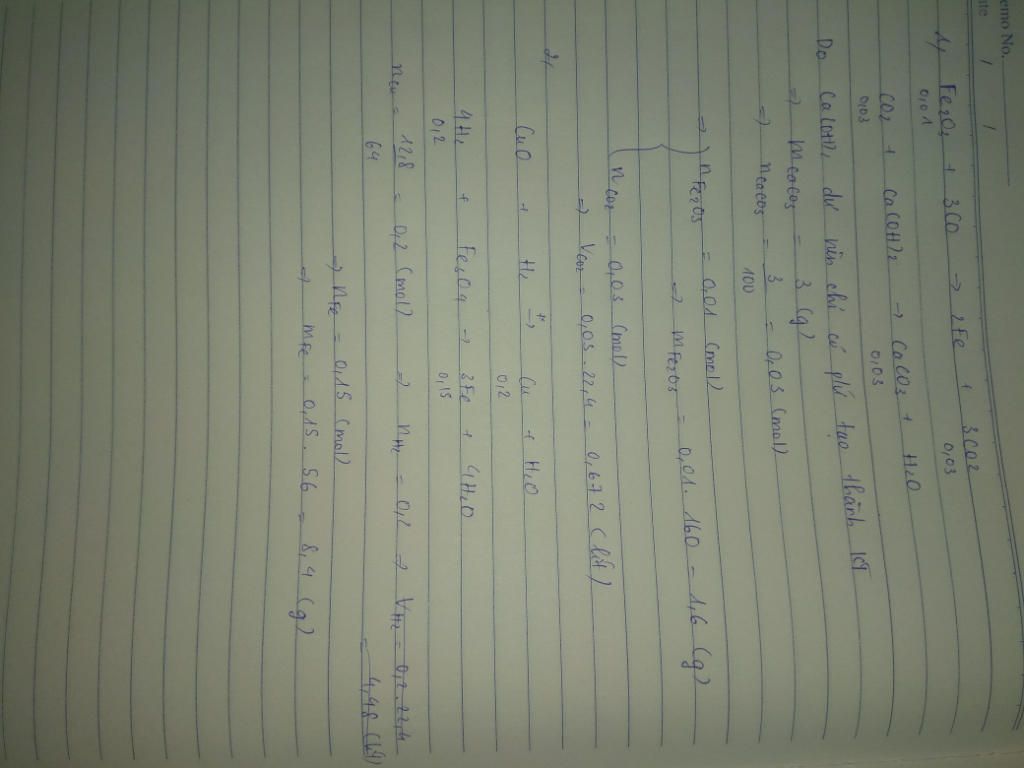 emo No.
ate / /
1/ Fe2O3 + 3CO → 2Fe + 3CO2
0,01 0,03
CO2 + Ca(OH)2 → CaCO3 + H2O
0,03 0,03
Do Ca(OH)2 dư nên chỉ có pứ tạo thành
⇒ mCaCO3 = 3 (g)
⇒ nCaCO3 = 3/100 = 0,03 (mol)
⇒ { nFe2O3 = 0,01 (mol)
⇒ mFe2O3 = 0,01. 160 = 1,6 (g)
nCO2 = 0,03 (mol)
⇒ VCO2 = 0,03. 22,4 = 0,672 (lít)
2/
CuO + H2 t° → Cu + H2O
0,2
4H2 + Fe3O4 → 3Fe + 4H2O
0,2 0,15
nCu = 12,8/64 = 0,2 (mol) ⇒ nH2 = 0,2 ⇒ VH2 = 0,2.22,4
= 4,48 (lít)
⇒ nFe = 0,15 (mol)
⇒ mFe = 0,15. 56 = 8,4 (g)